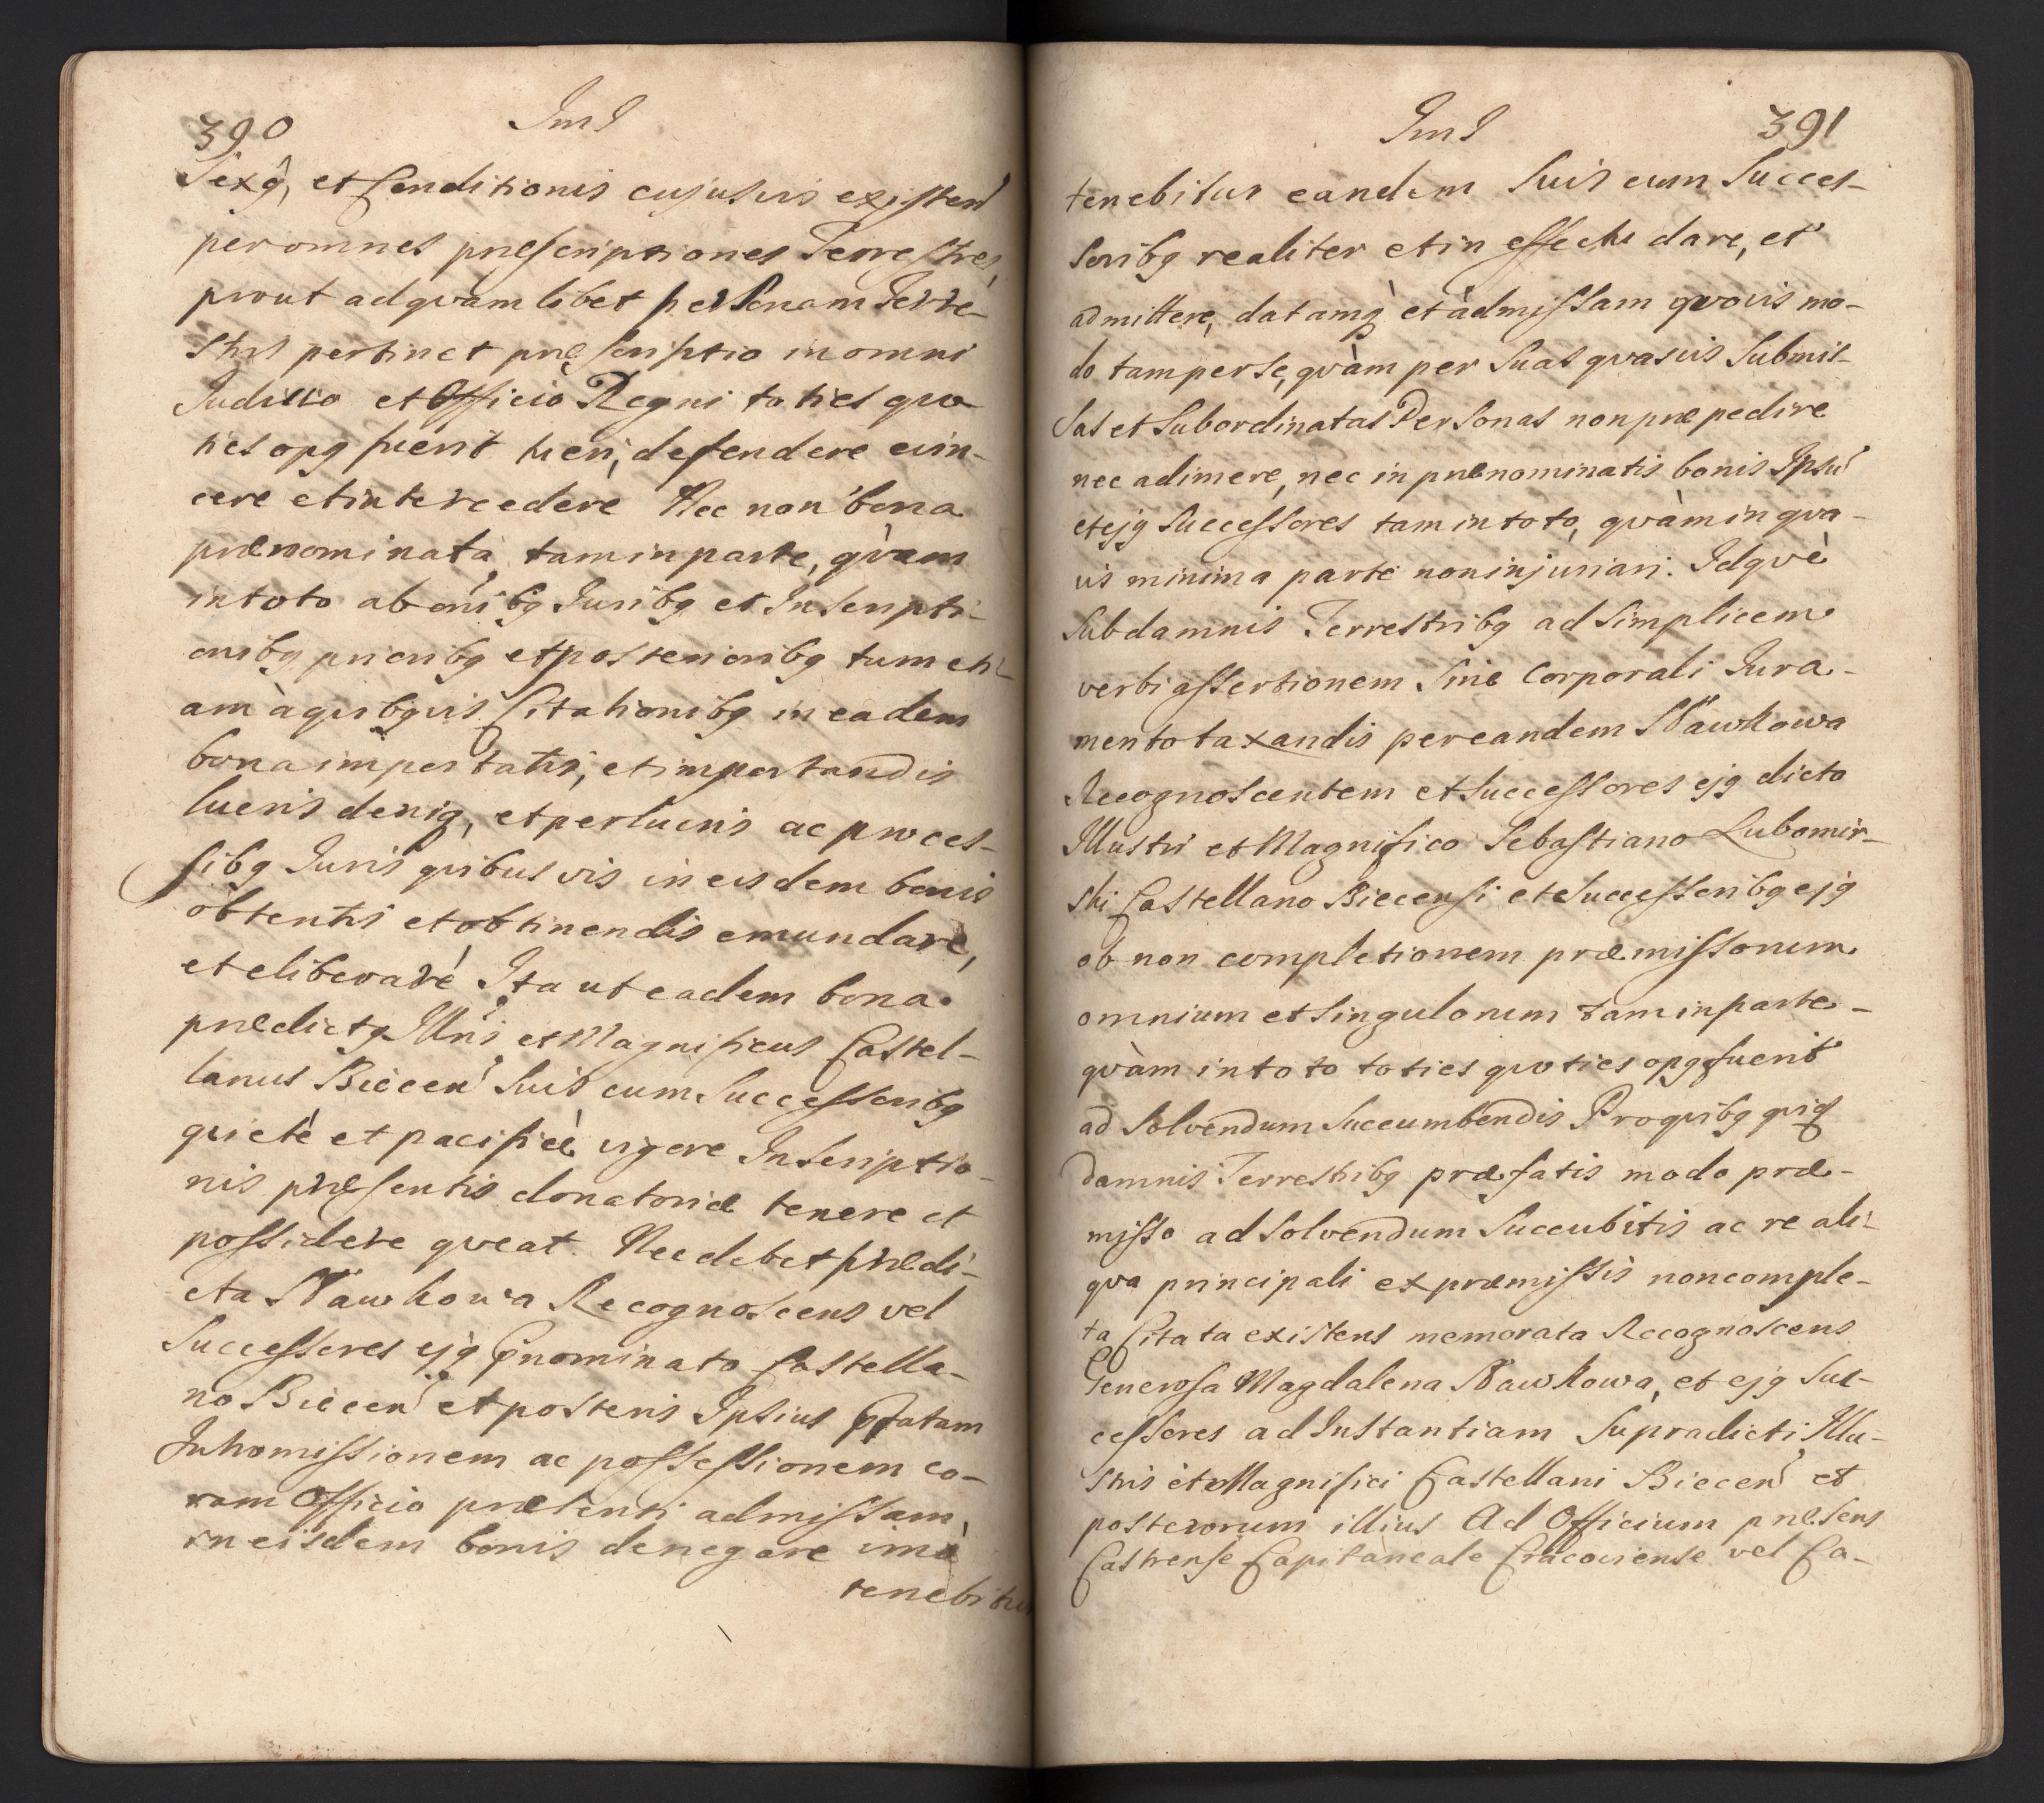 390
Sexq, et Conditionis cujusvis existen
per omnes præscriptiones Terrestres
prout ad qvamlibet personam Terre-
stris pertinet præscriptio in omni
Judicio et Officio Regni toties quo
ties opg fuerit tueri, defendere evin-
cere et intercedere Nec non bona
prænominata tam in parte, qvam
in toto ab onibg Juribg et Inscripti-
onibg prioribg et posterioribg tum eti-
am à qvisbgvis Citationibg in eadem
bona importatis, et importandis
lucris deniq, et perlucris ac proces-
sibg Juris qvibusvis in eisdem bonis
obtentis et obtinendis emundare,
et eliberare Ita ut eadem bona
prædictg Illris et Magnificus Castel-
lanus Biecen Suis cum Successoribg
qviete et pacifice vigore Inscriptio-
nis præsentis donatoriæ tenere et
possidere qveat. Nec debet prædi-
cta Nawkowa Recognoscens vel
Successores ejg pnominato Castella-
no Biecen et posteris Ipsius pfatam
Intromissionem ac possessionem co-
ram Officio prætenti admissam,
in eisdem bonis denegare imo
tenebitur
391
tenebitur eandem Suis cum Succes-
soribg realiter et in effectu dare, et
admittere, datamq et àdmissam qvovis mo-
do tam per se, qvàm per Suas qvasvis Submis-
sas et Subordinatas Personas non præpedire
nec adimere, nec in prænominatis bonis Ipsu
et ejg Successores tam in toto, qvàm in qva-
vis minima parte non injuriari. Idqvè
Sub damnis Terrestribg ad Simplicem
verbi assertionem Sine Corporali Jura-
mento taxandis per eandem Nawkowa
Recognoscentem et Successores ejg dicto
Illustri et Magnifico Sebastiano Lubomir-
ski Castellano Biecensi et Successoribg ejg
ob non completionem præmissorum
omnium et Singulorum tam in parte-
qvàm in toto toties qvoties opg fuerit
ad Solvendum Succumbendis Pro qvibg qviq
damnis Terrestribg præfatis modo præ-
misso ad Solvendum Succubitis ac re ali-
qva principali ex præmissis non comple-
ta Citata existens memorata Recognoscens
Generosa Magdalena Nawkowa, et ejg Suc-
cessores ad Instantiam Supradicti Illu-
stris et Magnifici Castellani Biecen et
posterorum illius Ad Officium præsens
Castrense Capitaneale Cracoviense vel Ca-